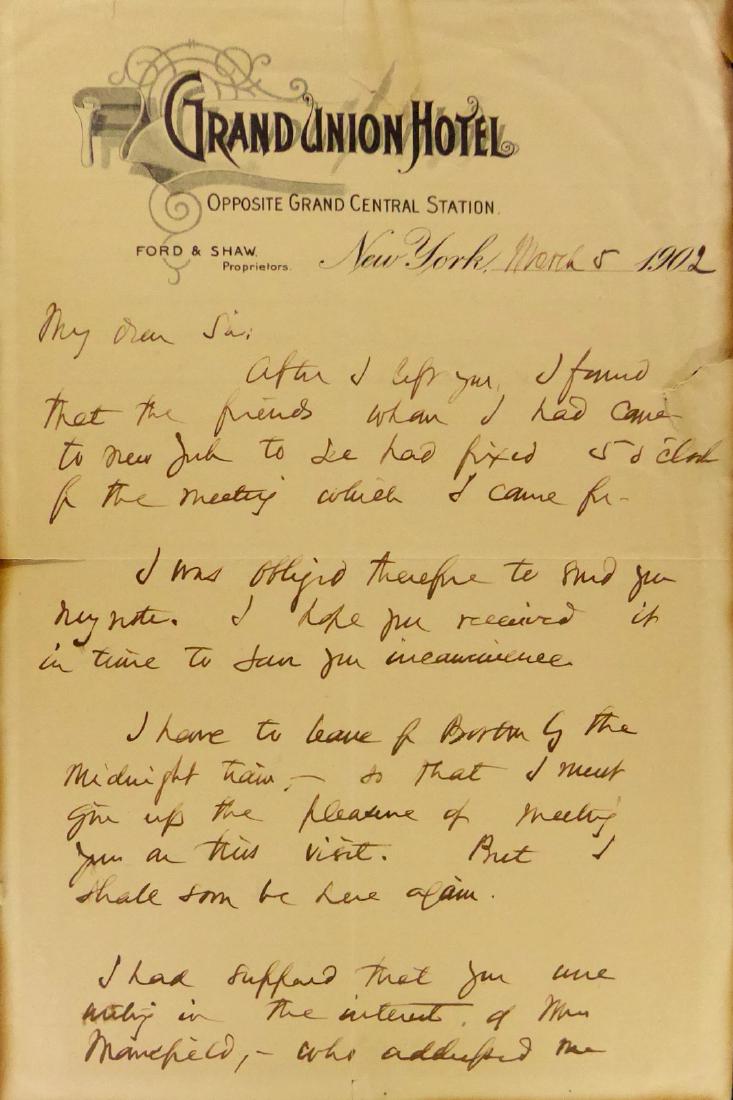 GRAND UNION HOTEL
OPPOSITE GRAND CENTRAL STATION.
FORD & SHAW.
Proprietors.
New York, March 5 1902
My dear Sir:
After I left you, I found
that the friends whom I had came
to New York to see had fixed 5 o'clock
for the meeting which I came for -
I was obliged therefore to send you
my note. I hope you received it
in time to save you inconvenience
I have to leave for Boston by the
midnight train, - so that I must
give up the pleasure of meeting
you on this visit. But I
shall soon be here again.
I had supposed that you were
writing in the interest of
Mansfield, - who addressed me